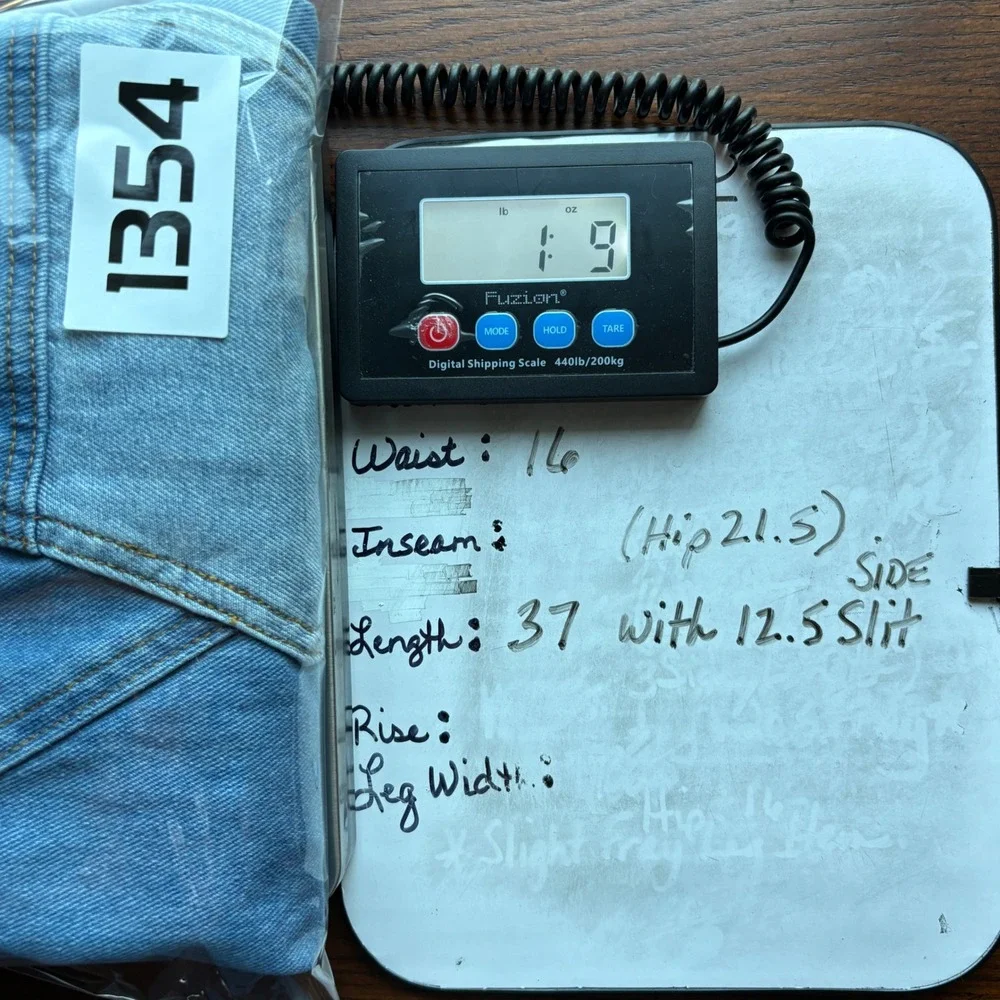 1354
lb oz
1: 9
Fuzion®
MODE HOLD TARE
Digital Shipping Scale 440lb/200kg
Waist: 16
Inseam: (Hip 21.5)
SIDE
Length: 37 with 12.5 Slit
Rise:
Leg Width:
Hip: 16
* Slight Fray Leg Hem